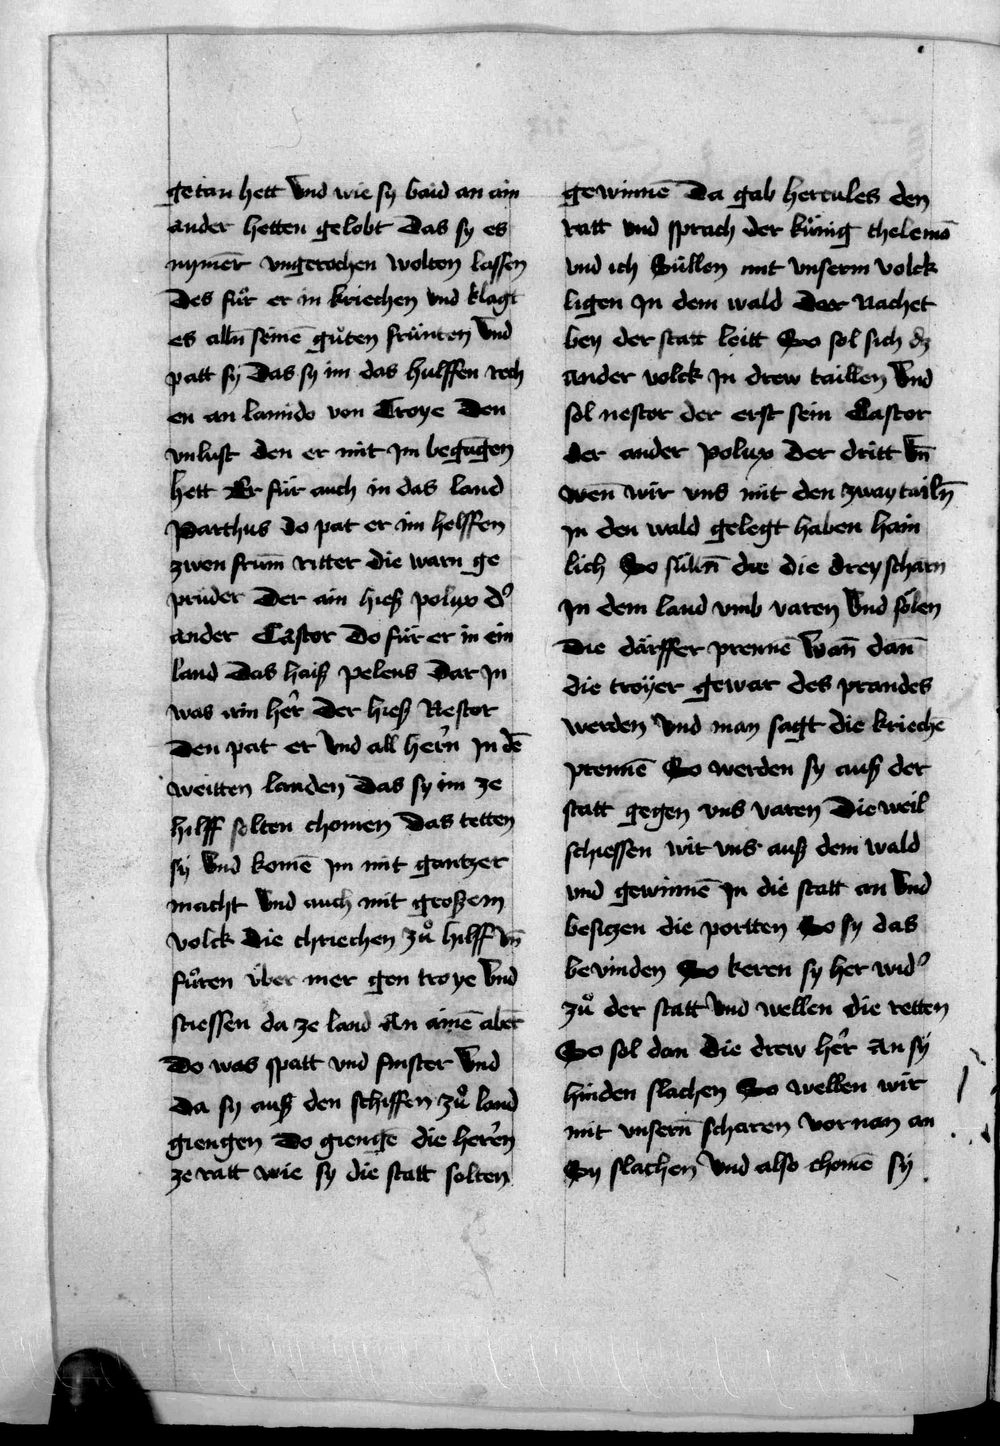 getan hett Und wie sy baid an ain
ander hetten gelobt Das sy es
nymer̄ ungerochen wolten lassen
Des fůr er in kriechen und klagt
es alln̄ seinē gůten frúnten Und
patt sy Das sy im das hulffen rech
en an lamido von Troye Den
unlust den er mit Jm begagen
hett Er fůr auch in das land
Parthus do pat er im helffen
zwen frum̄ ritter die warn ge
prúder Der ain hieß polux d'
ander Castor Do fůr er in ein
land Das haiß pelens Dar Jn
was ain her̄ Der hieß Nestor
Den pat er Und all her̄n Jn dē
weitten landen Das sy im ze
hilff solten chomen Das tetten
sy Und komē Jm mit gantzer
macht Und auch mit grossem
volck Die chriechen zů hilff Un̄
fůren über mer gen troye Und
stiessen da ze land An ainē aber̄
Do was spatt und finster Und
Da sy auß den schiffen zů land
giengen Do giengē die herrēn
ze ratt wie sy die statt solten
gewinnē Da gab hercules den
ratt und sprach der kůnig thelemō
und ich Súllen mit unserm volck
ligen Jn dem wald Der Nachet
bey der statt leitt So sol sich dz
Ander volck Jn drew taillen Und
sol nestor der erst sein Castor
der ander Polux Der dritt Un̄
wen̄ wir uns mit den zway tailn̄
Jn den wald gelegt haben hain
lich So súlln̄ die die drey scharn
Jn dem land umb varen Und sölen
Die därffer prennē Wan̄ dan̄
die troÿer gewar des prandes
werden Und man sagt die kriechē
prennē So werden sy auß der
statt gegen uns varen Die weil
schiessen wir uns auß dem wald
und gewinnē Jn die statt an Und
besiczen die portten So sy das
bevinden So keren sy her wid'
zů der statt Und wellen die retten
So sol dan die drew her̄ An sy
hinden slachen So wellen wir
mit unsern̄ scharen vornan an
Sy slachen Und also chomē sy